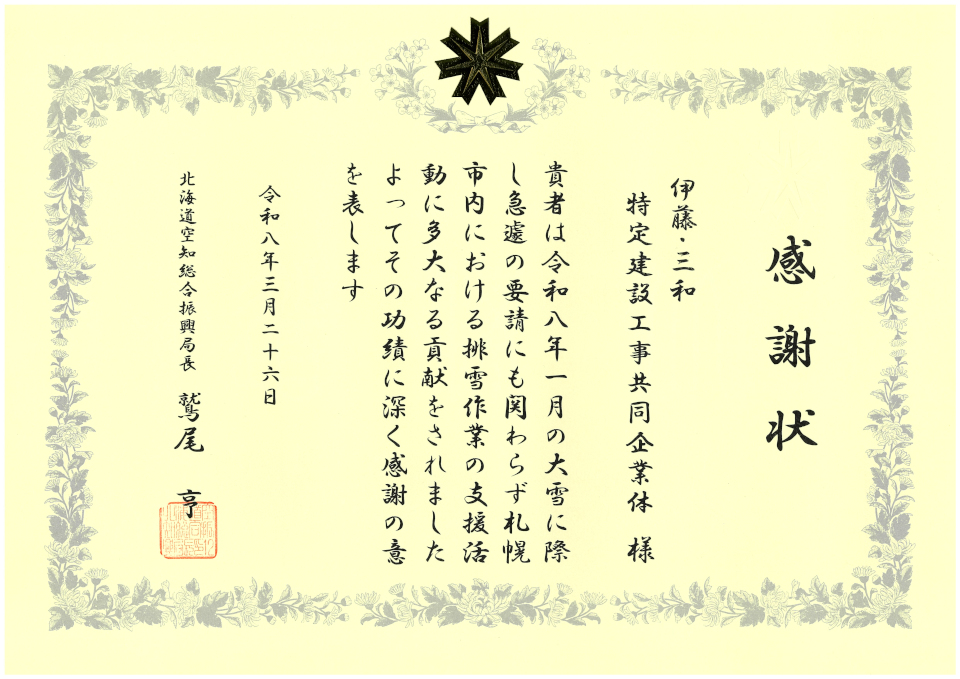 感謝状
伊藤・三和
特定建設工事共同企業体 様
貴者は令和八年一月の大雪に際
し急遽の要請にも関わらず札幌
市内における排雪作業の支援活
動に多大なる貢献をされました
よってその功績に深く感謝の意
を表します
令和八年三月二十六日
北海道空知総合振興局長 鷲尾 亨